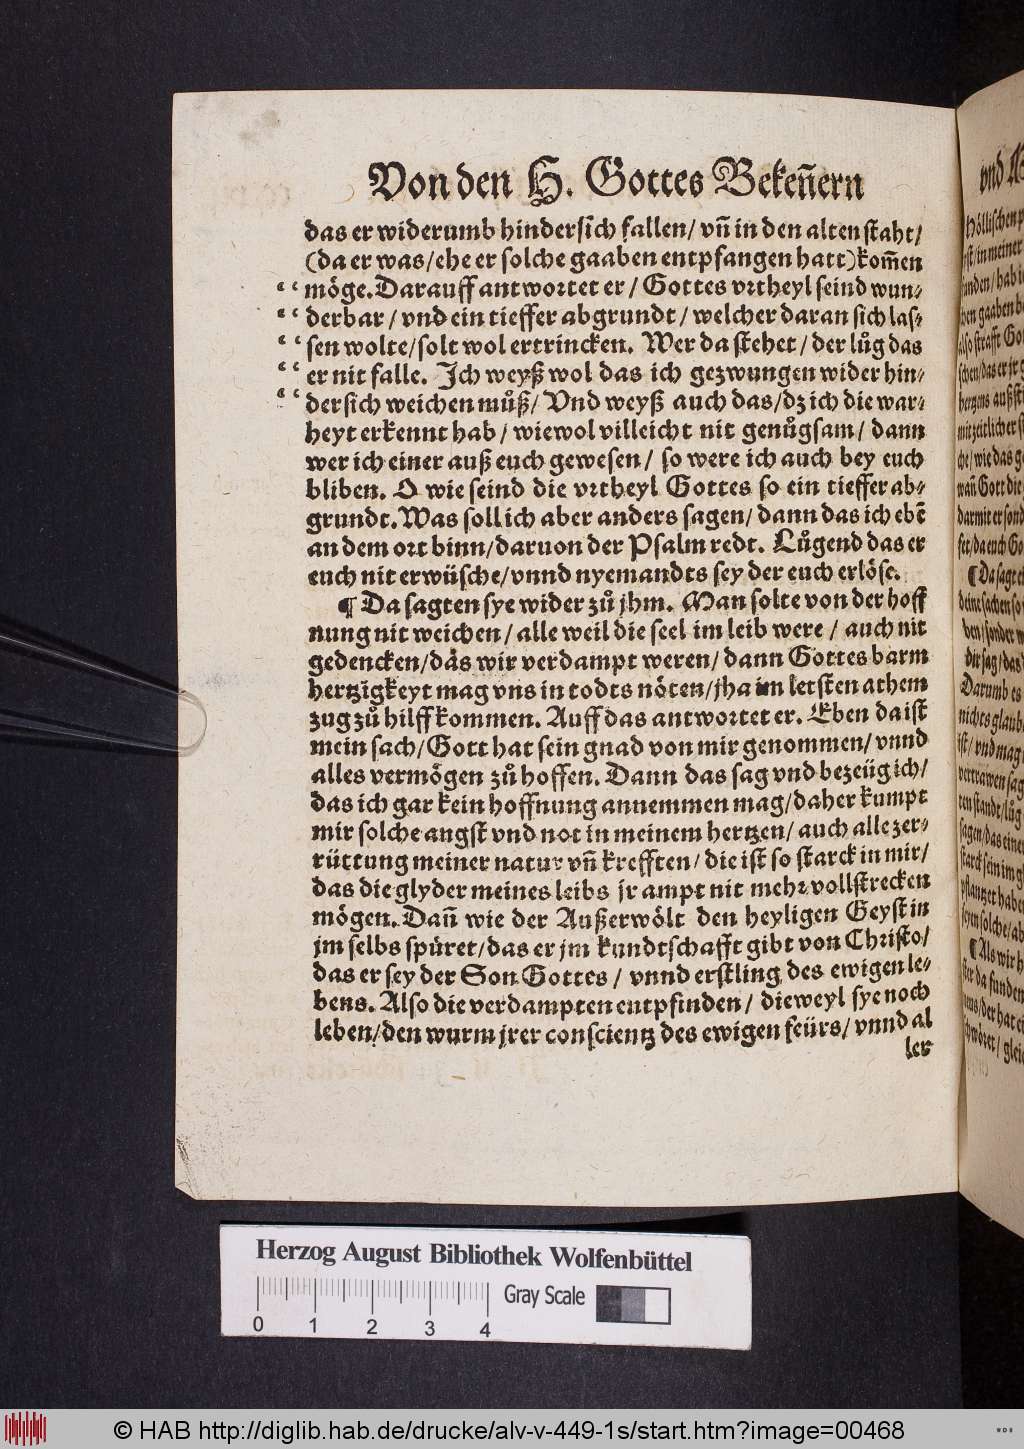 Von den H. Gottes Bekeñern
das er widerumb hindersich fallen/ vñ in den alten staht/
(da er was/ehe er solche gaaben entpfangen hatt)kom̃en
“ möge. Darauff antwortet er / Gottes vrtheyl seind wun-
“ derbar / vnd ein tieffer abgrundt / welcher daran sich las-
“ sen wolte/solt wol ertrincken. Wer da stehet / der lůg das
“ er nit falle. Ich weyß wol das ich gezwungen wider hin-
“ dersich weichen můß/ Vnd weyß auch das/dz ich die war-
heyt erkennt hab / wiewol villeicht nit genůgsam/ dann
wer ich einer auß euch gewesen/ so were ich auch bey euch
bliben. O wie seind die vrtheyl Gottes so ein tieffer ab-
grundt. Was soll ich aber anders sagen/ dann das ich ebẽ
an dem ort binn/daruon der Psalm redt. Lůgend das er
euch nit erwüsche/vnnd nyemandts sey der euch erlöse.
¶ Da sagten sye wider zů jhm. Man solte von der hoff
nung nit weichen / alle weil die seel im leib were / auch nit
gedencken/das wir verdampt weren/ dann Gottes barm
hertzigkeyt mag vns in todts nöten/jha im letsten athem
zug zů hilff kommen. Auff das antwortet er. Eben da ist
mein sach/Gott hat sein gnad von mir genommen/ vnnd
alles vermögen zů hoffen. Dann das sag vnd bezeüg ich/
das ich gar kein hoffnung annemmen mag/daher kumpt
mir solche angst vnd not in meinem hertzen/ auch alle zer-
rüttung meiner natur vñ krefften/ die ist so starck in mir/
das die glyder meines leibs jr ampt nit mehr vollstrecken
mögen. Dañ wie der Außerwölt den heyligen Geyst in
jm selbs spüret/das er jm kundtschafft gibt von Christo/
das er sey der Son Gottes / vnnd erstling des ewigen le-
bens. Also die verdampten entpfinden / dieweyl sye noch
leben/den wurm jrer conscientz des ewigen feürs/ vnnd al
ler
Herzog August Bibliothek Wolfenbüttel
Gray Scale
0 1 2 3 4
© HAB http://diglib.hab.de/drucke/alv-v-449-1s/start.htm?image=00468